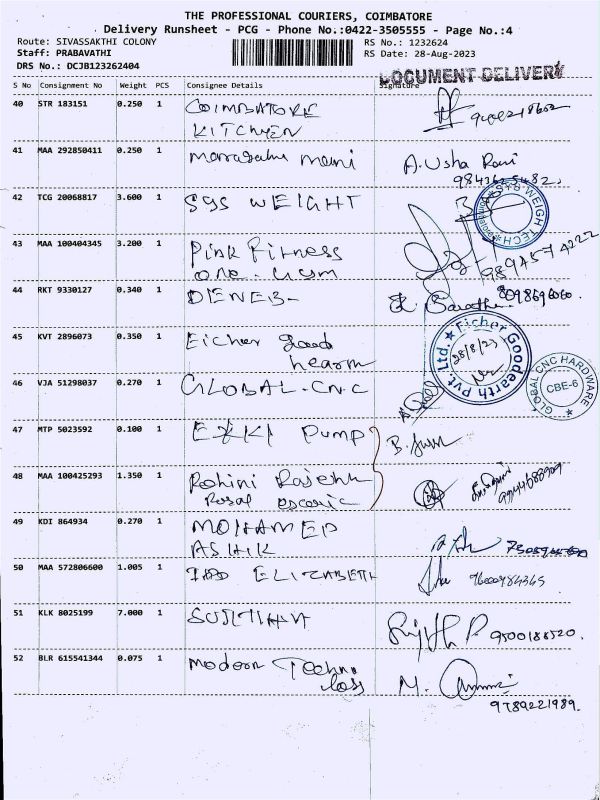 THE PROFESSIONAL COURIERS, COIMBATORE
Delivery Runsheet - PCG - Phone No.:0422-3505555 - Page No.:4
Route: SIVASSAKTHI COLONY RS No.: 1232624
Staff: PRABAVATHI RS Date: 28-Aug-2023
DRS No.: DCJB123262404
DOCUMENT DELIVERY
S No Consignment No Weight PCS Consignee Details Signature
40 STR 183151 0.250 1 COIMBATORE
KITCHEN
41 MAA 292850411 0.250 1 A. Usha Rani
42 TCG 20068817 3.600 1 SYS WEIGHT
SYS WEIGH TECH
43 MAA 100404345 3.200 1 Pink Fitness
one - Gym
9894574222
44 RKT 9330127 0.340 1 DENEB-
45 KVT 2896073 0.350 1 Eicher good
hearm
Eicher Goodearth Pvt. Ltd.
28/8/23
46 VJA 51298037 0.270 1 GLOBAL-CNC
GLOBAL CNC HARDWARE
CBE-6
47 MTP 5023592 0.100 1 Pump
48 MAA 100425293 1.350 1 Rohini Rajesh
49 KDI 864934 0.270 1 MOHAMED
ASHIK
50 MAA 572806600 1.005 1 ELIZABETH
9600984345
51 KLK 8025199 7.000 1 SUJITHAA
9500188520.
52 BLR 615541344 0.075 1 Modern Techno
loss M.
9789221989.